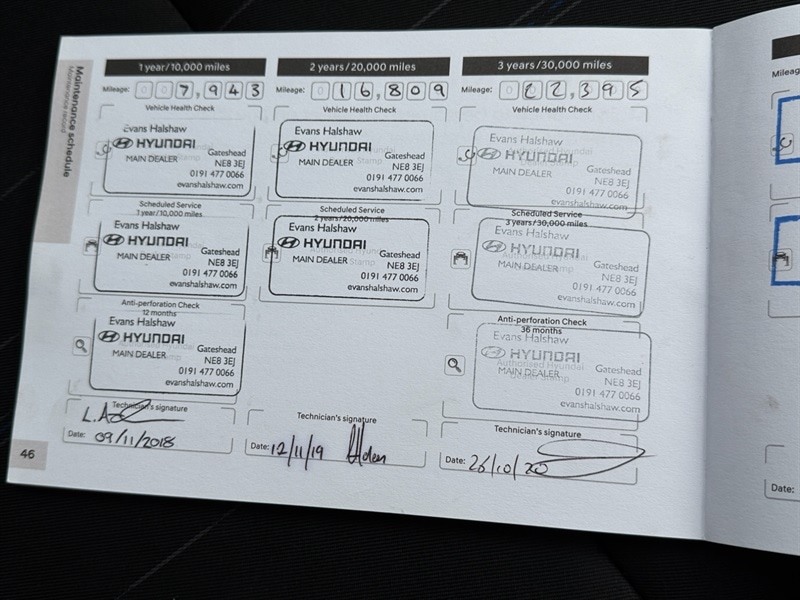 Maintenance schedule
Maintenance record
1 year/10,000 miles
Mileage: 007,943
Vehicle Health Check
Evans Halshaw
HYUNDAI
MAIN DEALER
Gateshead
NE8 3EJ
0191 477 0066
evanshalshaw.com
Scheduled Service
1 year/10,000 miles
Evans Halshaw
HYUNDAI
MAIN DEALER
Gateshead
NE8 3EJ
0191 477 0066
evanshalshaw.com
Anti-perforation Check
12 months
Evans Halshaw
HYUNDAI
MAIN DEALER
Gateshead
NE8 3EJ
0191 477 0066
evanshalshaw.com
Technician's signature
Date: 09/11/2018
46
2 years/20,000 miles
Mileage: 016,809
Vehicle Health Check
Evans Halshaw
HYUNDAI
MAIN DEALER
Gateshead
NE8 3EJ
0191 477 0066
evanshalshaw.com
Scheduled Service
2 years/20,000 miles
Evans Halshaw
HYUNDAI
MAIN DEALER
Gateshead
NE8 3EJ
0191 477 0066
evanshalshaw.com
Technician's signature
Date: 12/11/19
3 years/30,000 miles
Mileage: 022,395
Vehicle Health Check
Evans Halshaw
Authorised Hyundai
HYUNDAI
MAIN DEALER
Gateshead
NE8 3EJ
0191 477 0066
evanshalshaw.com
Scheduled Service
3 years/30,000 miles
Evans Halshaw
HYUNDAI
Authorised Hyundai
MAIN DEALER
Gateshead
NE8 3EJ
0191 477 0066
evanshalshaw.com
Anti-perforation Check
36 months
Evans Halshaw
HYUNDAI
Authorised Hyundai
MAIN DEALER
Dealer Stamp
Gateshead
NE8 3EJ
0191 477 0066
evanshalshaw.com
Technician's signature
Date: 26/10/20
Mileag
Date: